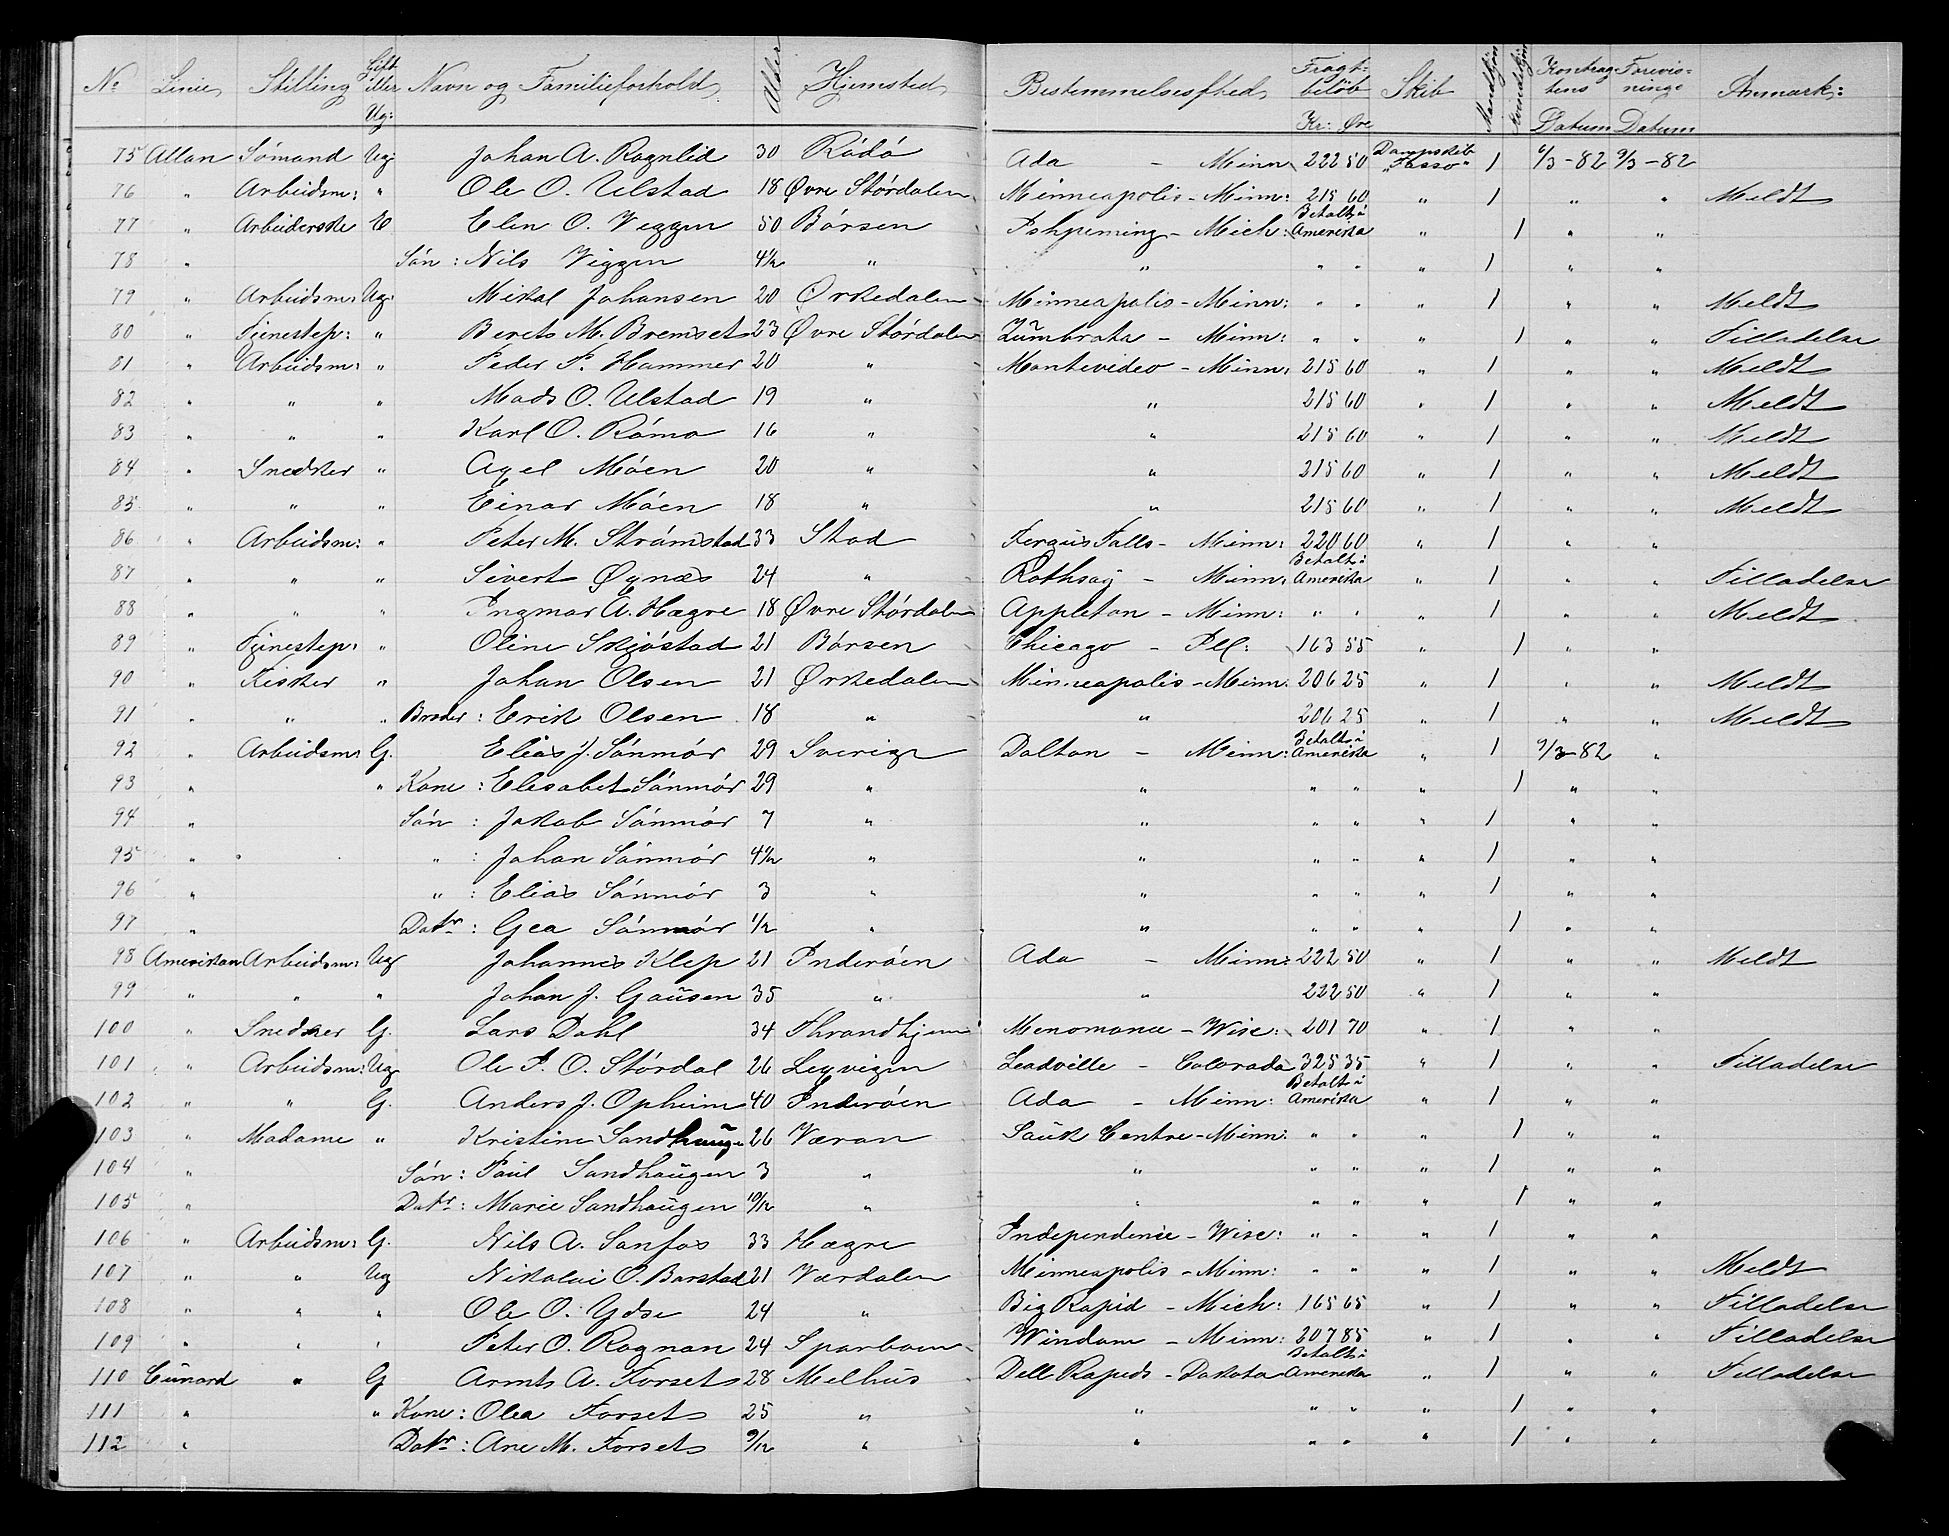 No Linie Stilling Gift eller Ug: Navn og Familieforhold Alder Hjemsted Bestemmelsessted Fragtbelöb Kr: Øre Skib Mandkjön Kvindekjön Kontraktens Datum Forevisnings Datum Anmærk:
75 Allan Sömand Ug: Johan A. Rognlid 30 Rödö Ada - Minn 222 50 Dampskib "Tasso" 1 9/3-82 9/3-82
76 " Arbeidsm: " Ole O. Ulstad 18 Øvre Stördalen Minneapolis - Minn: 215 60 " 1 " " Meldt
77 " Arbeiderske E Elen O. Viggen 50 Börsen Ishpeming - Mich: Betalt i Amerika " 1 " "
78 " Sön: Nils Viggen 4½ " " " " " 1 " "
79 " Arbeidsm: Ug: Mikal Johansen 20 Ørkedalen Minneapolis - Minn: " " " 1 " " Meldt
80 " Tjenestep: " Berets M. Bremset 23 Øvre Stördalen Zümbrata - Minn: " " " 1 " " Tilladelse
81 " Arbeidsm: " Peder P. Hammer 20 " Montevideo - Minn: 215 60 " 1 " " Meldt
82 " " " Mads O. Ulstad 19 " " 215 60 " 1 " " Meldt
83 " " " Karl O. Römo 16 " " 215 60 " 1 " " Meldt
84 " Snedker " Agel Möen 20 " " 215 60 " 1 " " Meldt
85 " " " Einar Möen 18 " " 215 60 " 1 " " Meldt
86 " Arbeidsm: " Peter M. Strömstad 33 Stod Fergus Falls - Minn: 220 60 " 1 " "
87 " " " Sivert Øgnæs 24 " Rothsay - Minn: Betalt i Amerika " 1 " " Tilladelse
88 " " " Ingmar A. Hægre 18 Øvre Stördalen Appleton - Minn: " " " 1 " " Meldt
89 " Tjenestep: " Oline Skjöstad 21 Börsen Chicago - Ill: 163 55 " 1 " "
90 " " Johan Olsen 21 Ørkedalen Minneapolis - Minn: 206 25 " 1 " " Meldt
91 " " " Broder: Erik Olsen 18 " " 206 25 " 1 " " Meldt
92 " Arbeidsm: G. Elias J. Sönmör 29 Sverige Dalton - Minn: Betalt i Amerika " 1 9/3-82 "
93 " " Kone: Elisabet Sönmör 29 " " " " " 1 " "
94 " Sön: Jakob Sönmör 7 " " " " " 1 " "
95 " " : Johan Sönmör 4½ " " " " " 1 " "
96 " " : Elias Sönmör 3 " " " " " 1 " "
97 " Datr: Gea Sönmör ½ " " " " " 1 " "
98 Amerikan Arbeidsm: Ug Johannes Klep 21 Inderöen Ada - Minn: 222 50 " 1 " " Meldt
99 " " " Johan J. Gausen 35 " " 222 50 " 1 " "
100 " Snedker G. Lars Dahl 34 Thrandhjem Menomonee - Wisc: 201 70 " 1 " "
101 " Arbeidsm: Ug Ole P. O. Stördal 26 Leqvigen Leadville - Colorado 325 35 " 1 " " Tilladelse
102 " " G. Anders J. Opheim 40 Inderöen Ada - Minn: Betalt i Amerika " 1 " "
103 " Madame " Kristine Sandhaug 26 Væran Sauk Centre - Minn: " " " 1 " "
104 " Sön: Paul Sandhaugen 3 " " " " " 1 " "
105 " Datr: Marie Sandhaugen 10/12 " " " " " 1 " "
106 " Arbeidsm: G. Nils A. Sonfos 33 Hægre Independence - Wisc: " " " 1 " "
107 " " Ug Nikolai O. Barstad 21 Værdalen Minneapolis - Minn: " " " 1 " " Meldt
108 " " " Ole O. Ydse 24 " Big Rapid - Mich: 165 65 " 1 " " Tilladelse
109 " " " Peter O. Rognan 24 Sparboen Windom - Minn: 207 85 " 1 " " Tilladelse
110 Cunard " G Arnts A. Forset 28 Melhus Dell Rapids - Dakota Betalt i Amerika " 1 " " Tilladelse
111 " " Kone: Olea Forset 25 " " " " " 1 " "
112 " Datr: Ane M. Forset 9/12 " " " " " 1 " "